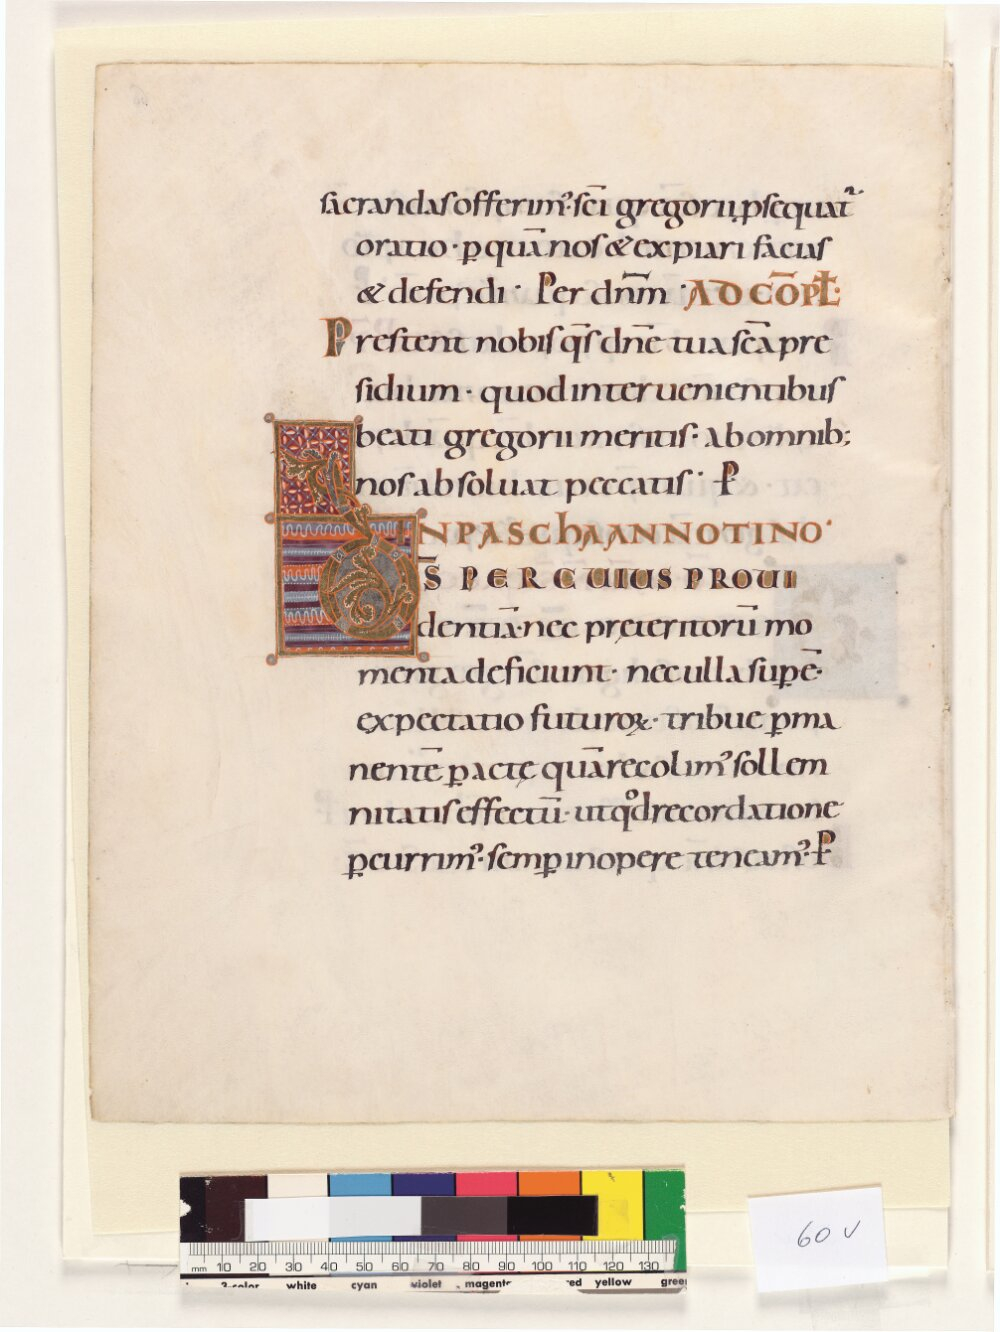 sacrandas offerim᾽· sc̄i gregorii, p̱sequat᷑
oratio · p̱ quā nos & expiari facias
& defendi · Per dn̄m · AD COP̄L:
Prestent nobis qs̄ dn̄e tua scā pre
sidium · quod interuenientibus
beati gregorii meritis · ab omnib;
nos absoluat peccatis · P̄
IN PASCHA ANNOTINO ·
DS̄ PER CUIUS PROUI
dentiā · nec preteritorū mo
menta deficiunt · nec ulla supē ·
expectatio futuroꝝ · tribue p̱ma
nentē p̱actę quā recolim᾽ sollem
nitatis effectū · ut qͦd recordatione
p̱currim᾽ · semp̱ in opere teneam᾽ · P̄
60 v
mm 10 20 30 40 50 60 70 80 90 100 110 120 130
3-color white cyan violet magenta red yellow green